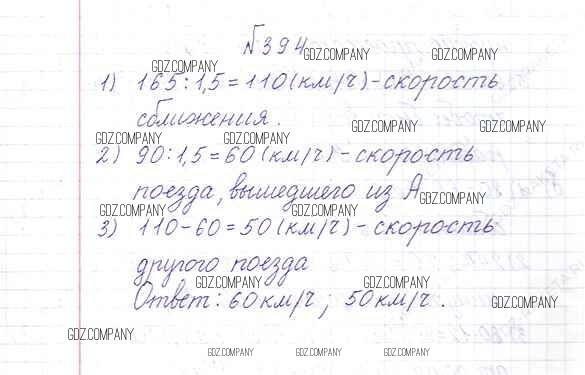 №394
GDZ.COMPANY GDZ.COMPANY
GDZ.COMPANY
1) 165 : 1,5 = 110 (км/ч) - скорость
сближения.
GDZ.COMPANY GDZ.COMPANY
GDZ.COMPANY GDZ.COMPANY
2) 90 : 1,5 = 60 (км/ч) - скорость
поезда, вышедшего из А
GDZ.COMPANY
GDZ.COMPANY GDZ.COMPANY
3) 110 - 60 = 50 (км/ч) - скорость
другого поезда
GDZ.COMPANY GDZ.COMPANY
Ответ: 60 км/ч ; 50 км/ч .
GDZ.COMPANY
GDZ.COMPANY
GDZ.COMPANY GDZ.COMPANY GDZ.COMPANY